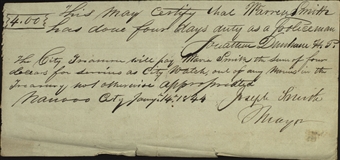 $4.00 This May Certify that Warren Smith
has done four days duty as a Policeman
Jonathan Dunham
The City Treasurer will pay Warren Smith the sum of four
dollars for services as City Watch, out of any Monies in the
Treasury not otherwise appropriated
Nauvoo City Jany 14th 1844
Joseph Smith
Mayor